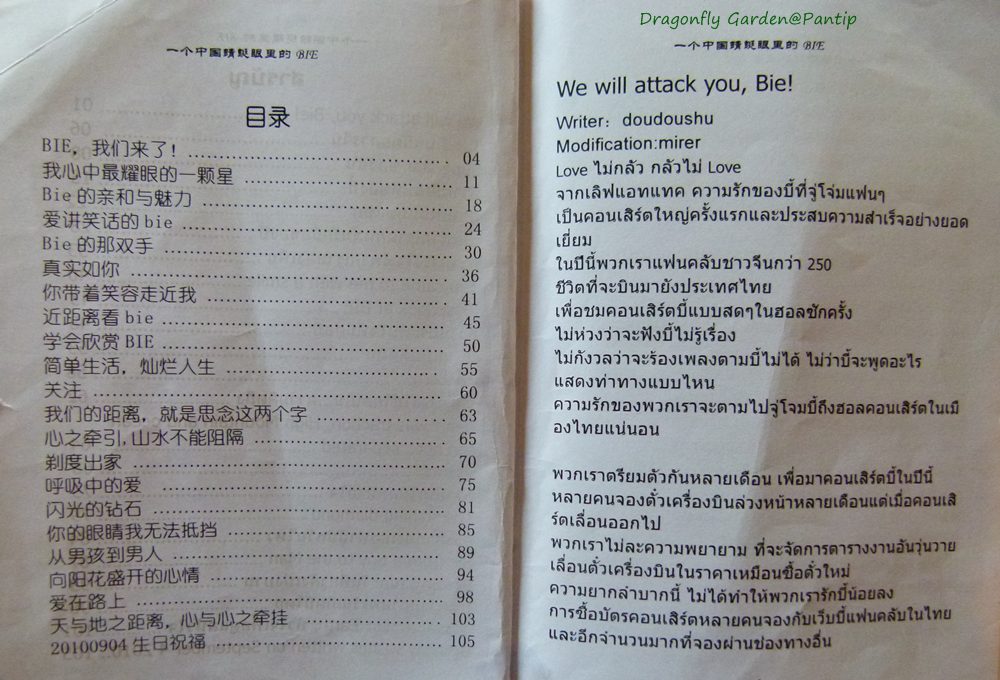 Dragonfly Garden@Pantip
一个中国蜻蜓眼里的 BIE
目录
BIE，我们来了！ 04
我心中最耀眼的一颗星 11
Bie 的亲和与魅力 18
爱讲笑话的 bie 24
Bie 的那双手 30
真实如你 36
你带着笑容走近我 41
近距离看 bie 45
学会欣赏 BIE 50
简单生活，灿烂人生 55
关注 60
我们的距离，就是思念这两个字 63
心之牵引,山水不能阻隔 65
剃度出家 70
呼吸中的爱 75
闪光的钻石 81
你的眼睛我无法抵挡 85
从男孩到男人 89
向阳花盛开的心情 94
爱在路上 98
天与地之距离，心与心之牵挂 103
20100904 生日祝福 105
一个中国蜻蜓眼里的 BIE
We will attack you, Bie!
Writer: doudoushu
Modification:mirer
Love ไม่กลัว กลัวไม่ Love
จากเลิฟแอทแทค ความรักของบี้ที่จู่โจ่มแฟนๆ
เป็นคอนเสิร์ตใหญ่ครั้งแรกและประสบความสำเร็จอย่างยอด
เยี่ยม
ในปีนี้พวกเราแฟนคลับชาวจีนกว่า 250
ชีวิตที่จะบินมายังประเทศไทย
เพื่อชมคอนเสิร์ตบี้แบบสดๆในฮอลซักครั้ง
ไม่ห่วงว่าจะฟังบี้ไม่รู้เรื่อง
ไม่กังวลว่าจะร้องเพลงตามบี้ไม่ได้ ไม่ว่าบี้จะพูดอะไร
แสดงท่าทางแบบไหน
ความรักของพวกเราจะตามไปจู่โจมบี้ถึงฮอลคอนเสิร์ตในเมื
องไทยแน่นอน
พวกเราตรียมตัวกันหลายเดือน เพื่อมาคอนเสิร์ตบี้ในปีนี้
หลายคนจองตั๋วเครื่องบินล่วงหน้าหลายเดือนแต่เมื่อคอนเสิ
ร์ตเลื่อนออกไป
พวกเราไม่ละความพยายาม ที่จะจัดการตารางงานอันวุ่นวาย
เลื่อนตั๋วเครื่องบินในราคาเหมือนซื้อตั๋วใหม่
ความยากลำบากนี้ ไม่ได้ทำให้พวกเรารักบี้น้อยลง
การซื้อบัตรคอนเสิร์ตหลายคนจองกับเว็บบี้แฟนคลับในไทย
และอีกจำนวนมากที่จองผ่านช่องทางอื่น